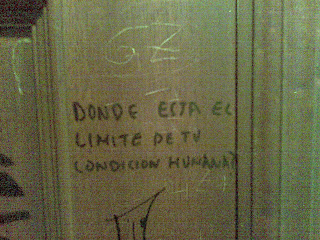 GZ
DONDE ESTA EL
LIMITE DE TU
CONDICION HUMANA?